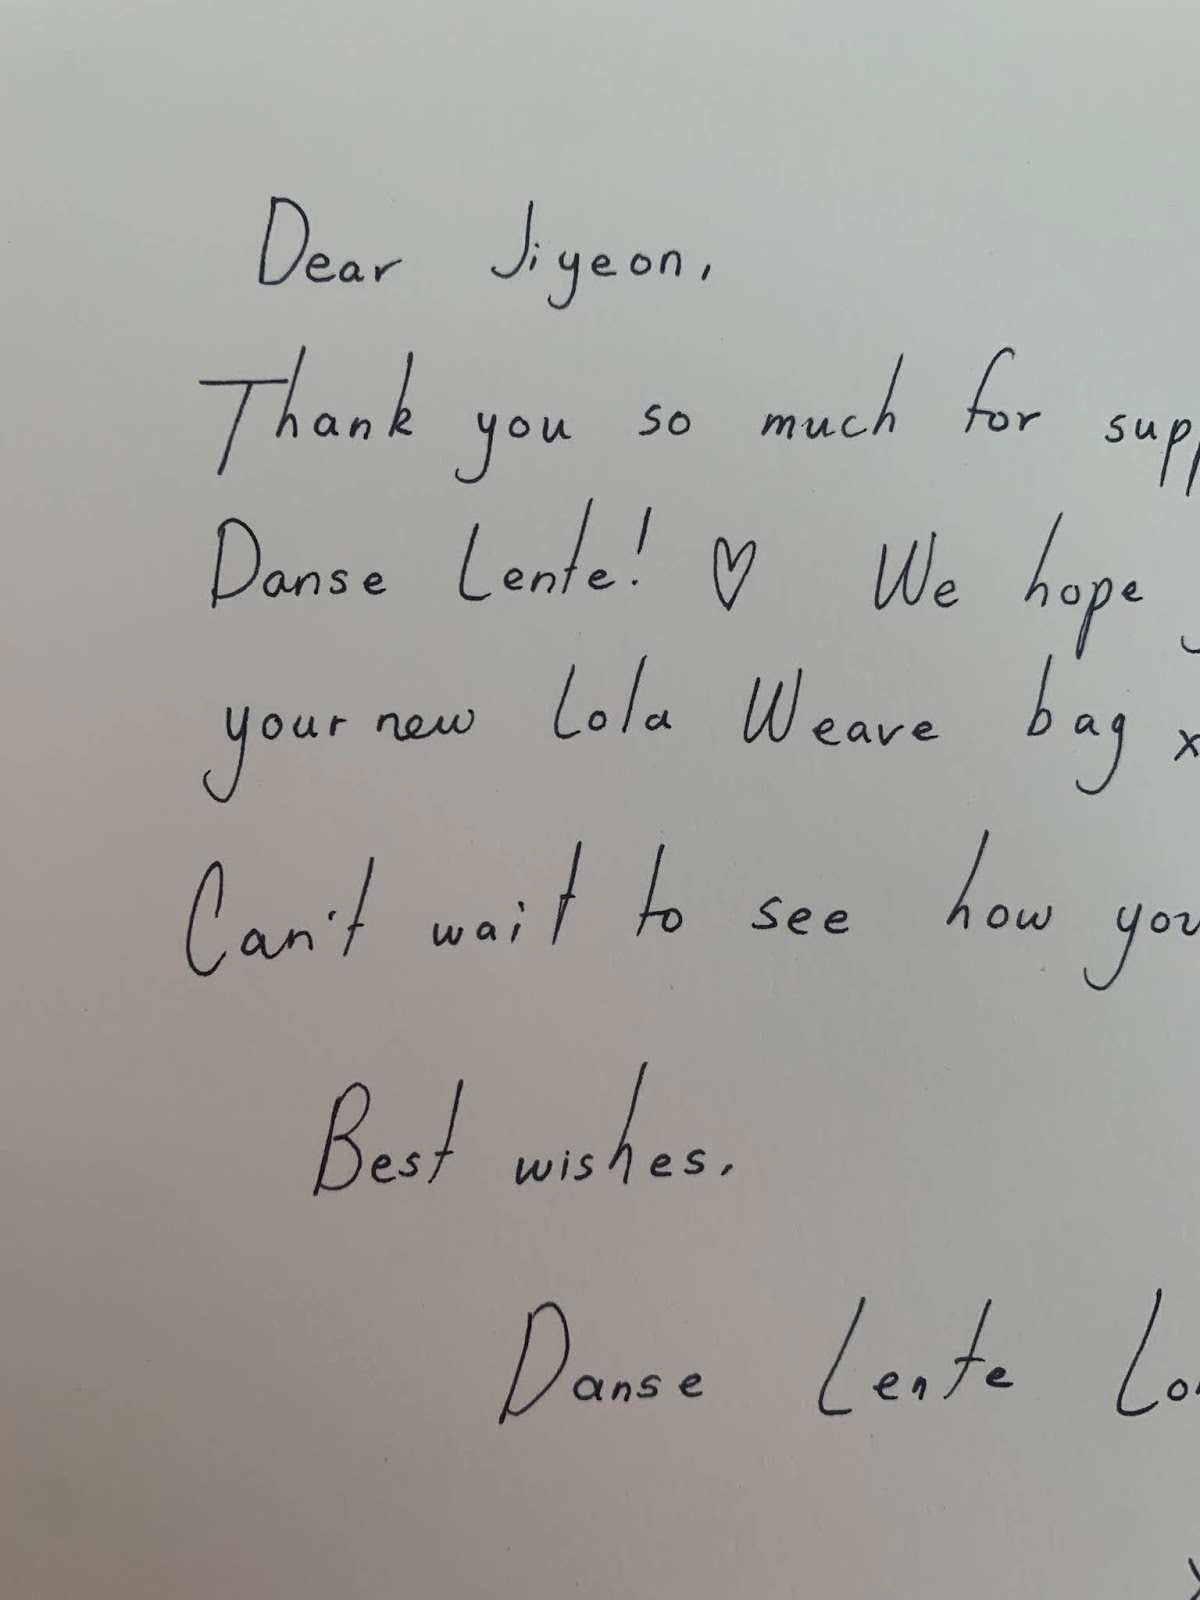 Dear Jiyeon,
Thank you so much for supp
Danse Lente! ♡ We hope
your new Lola Weave bag x
Can't wait to see how you
Best wishes,
Danse Lente Lo